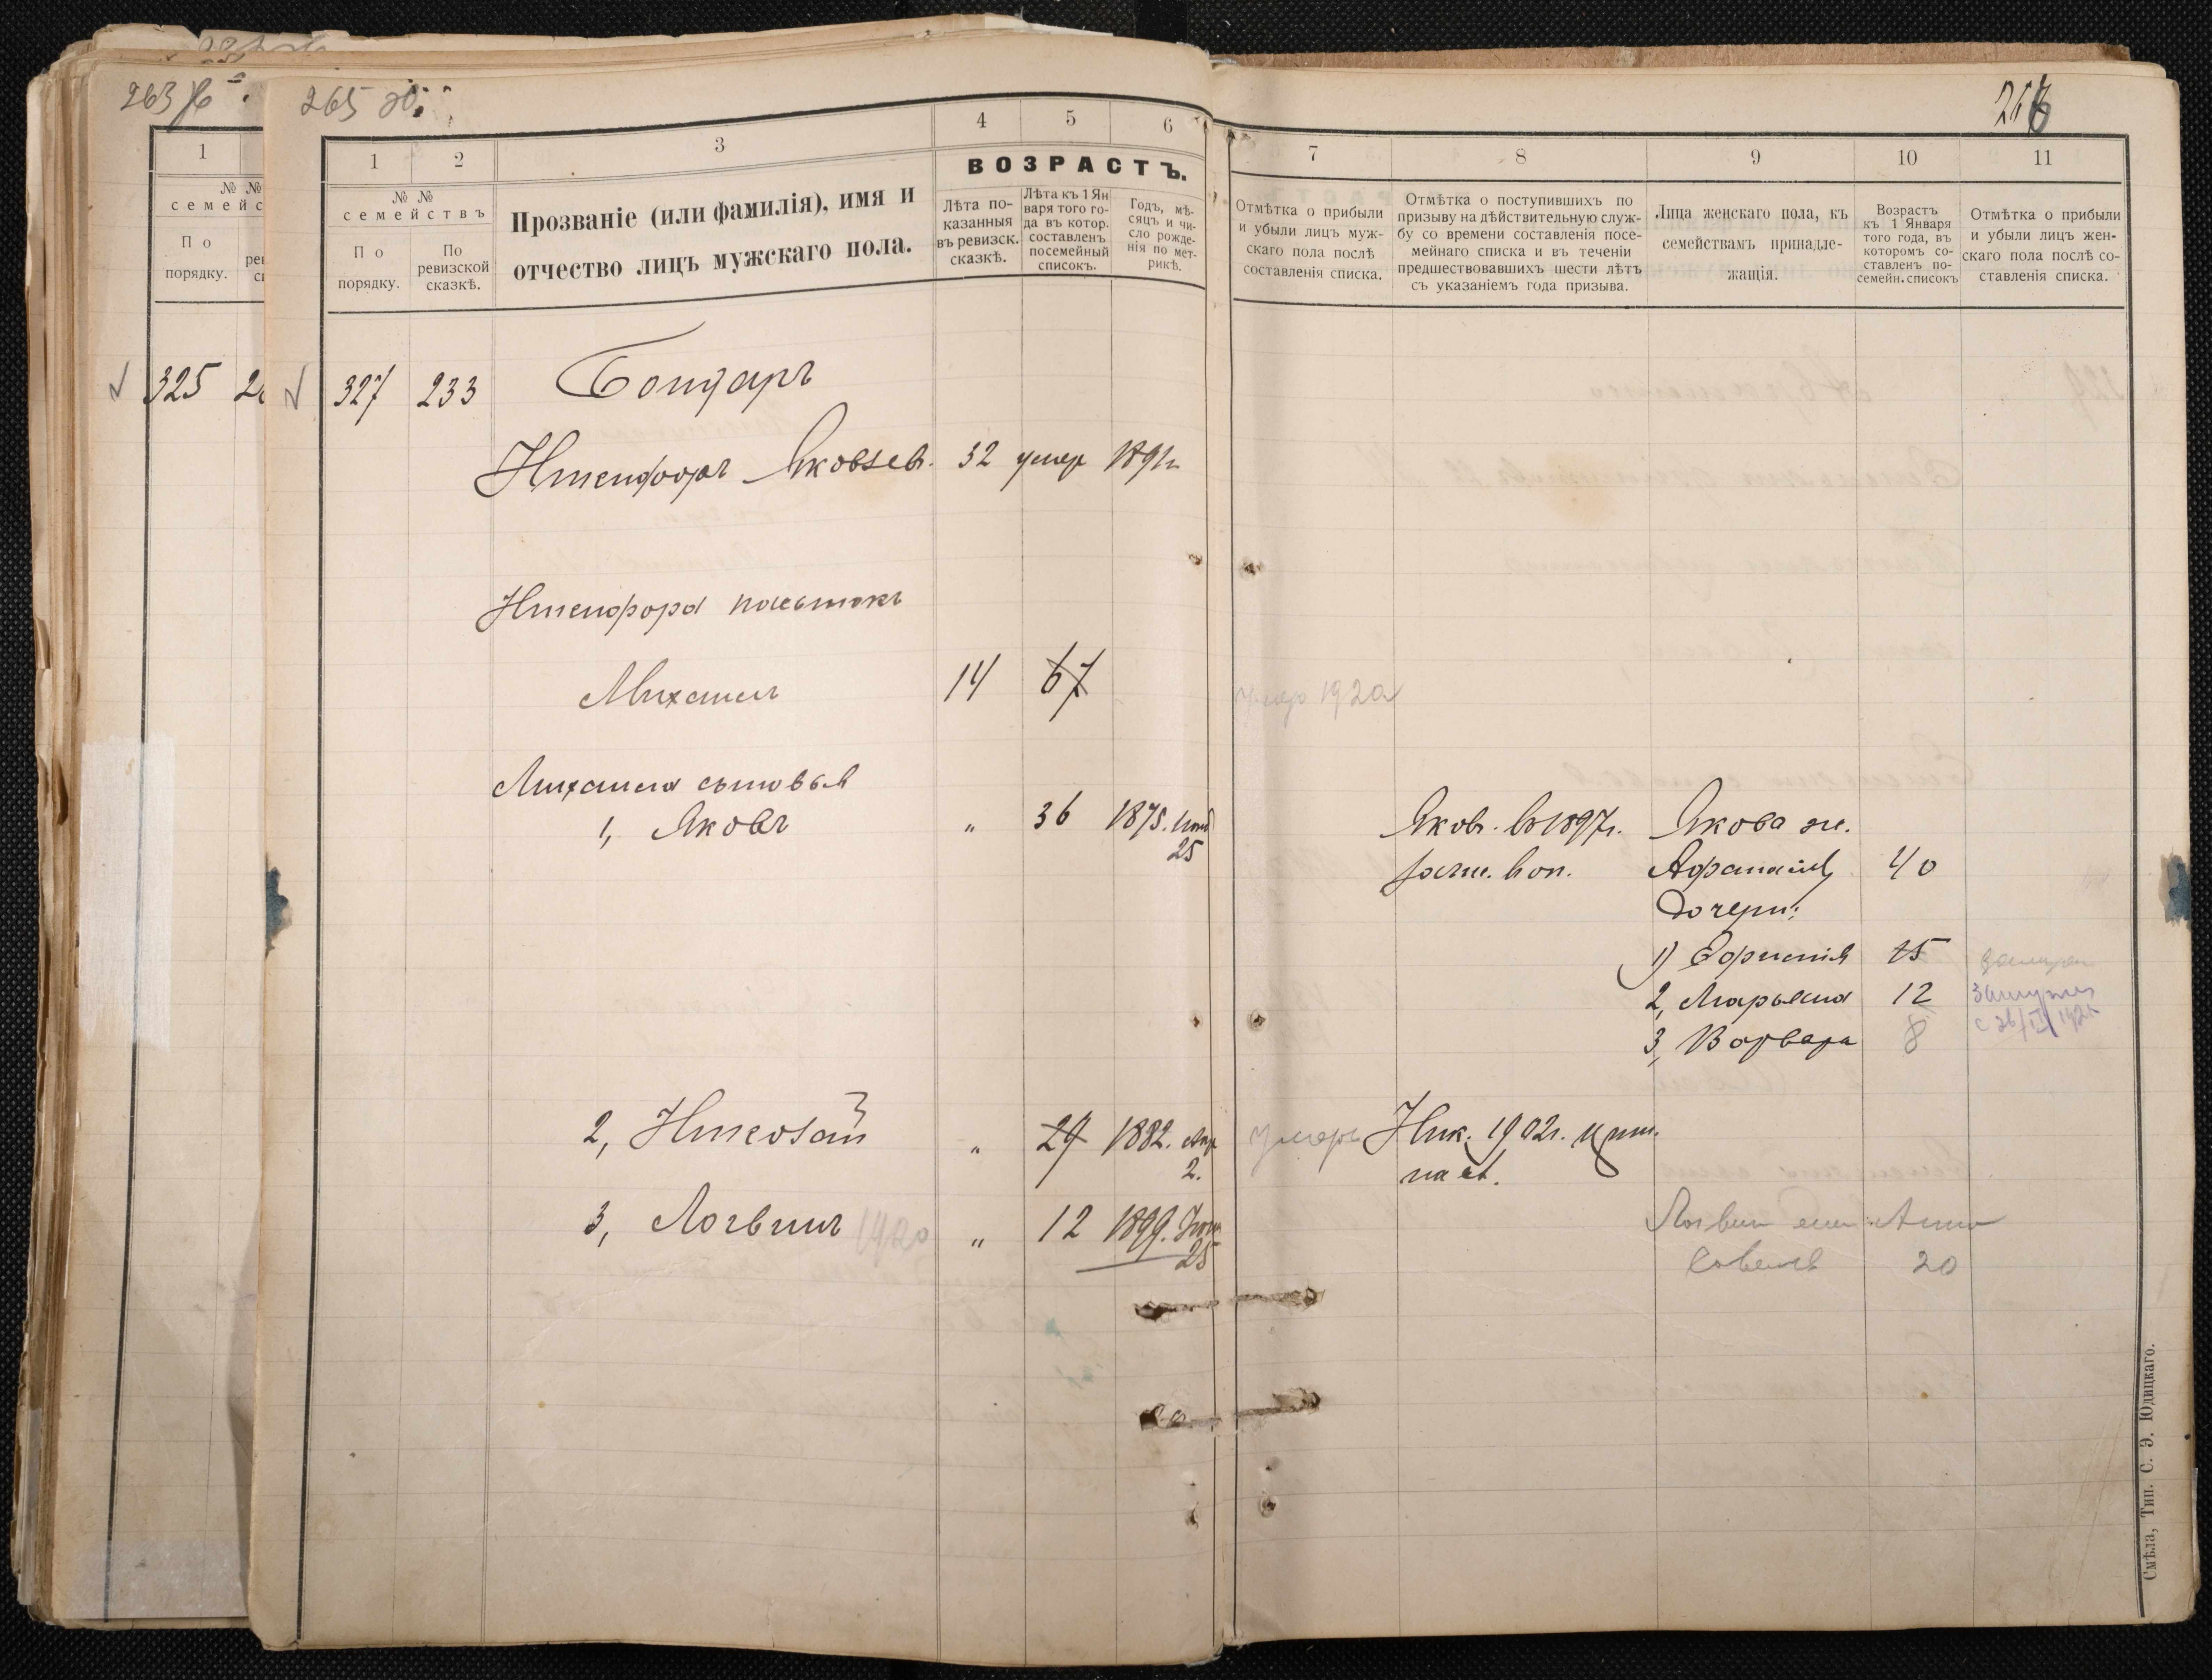 263
265 об.
266
1
№ №
семейс
По
порядку.
325
1 2 3 4 5 6
№ №
семействъ
По
порядку.
По
ревизской
сказкѣ.
Прозваніе (или фамилія), имя и
отчество лицъ мужскаго пола.
ВОЗРАСТЪ.
Лѣта по-
казанныя
въ ревизск.
сказкѣ.
Лѣта къ 1 Ян
варя того го-
да въ котор.
составленъ
посемейный
списокъ.
Годъ, мѣ-
сяцъ и чи-
сло рожде-
нія по мет-
рикѣ.
7 8 9 10 11
Отмѣтка о прибыли
и убыли лицъ муж-
скаго пола послѣ
составленія списка.
Отмѣтка о поступившихъ по
призыву на дѣйствительную служ-
бу со времени составленія посе-
мейнаго списка и въ теченіи
предшествовавшихъ шести лѣтъ
съ указаніемъ года призыва.
Лица женскаго пола, къ
семействамъ принадле-
жащія.
Возрастъ
къ 1 Января
того года, въ
которомъ со-
ставленъ по-
семейн. списокъ
Отмѣтка о прибыли
и убыли лицъ жен-
скаго пола послѣ со-
ставленія списка.
327 233 Бондарь
Никифоръ Яковлев. 32 умер 1891г
Никифора пасынокъ
Михаилъ 14 67 умер 1920
Михаила сыновья
1, Яковъ " 36 1875. 25 Яков. въ 1897г. Якова ж.
зачис. в оп. 40
дочери:
1) Ефимія 15
2, Марьяна 12 замужем
3, Варвара 8
2, Николай " 29 1882. Апр 2. умеръ Ник. 1902г.
3, Логвинъ 1920 " 12 1899. 25 Логвин Анна
20
Смѣла, Тип. С. Э. Юдицкаго.